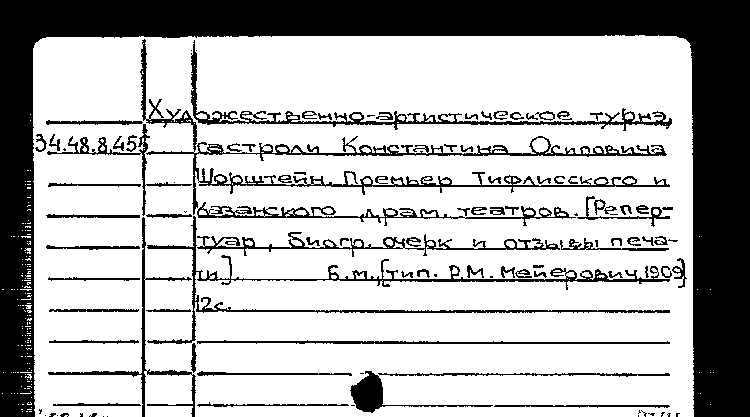 Художественно-артистическое турнэ,
34.48.8.455 гастроли Константина Осиповича
Шорштейн. Премьер Тифлисского и
Казанского драм. театров. [Репер-
туар, биогр. очерк и отзывы печа-
ти]. Б.м., [тип. Р.М. Мейерович, 1909]
12с.